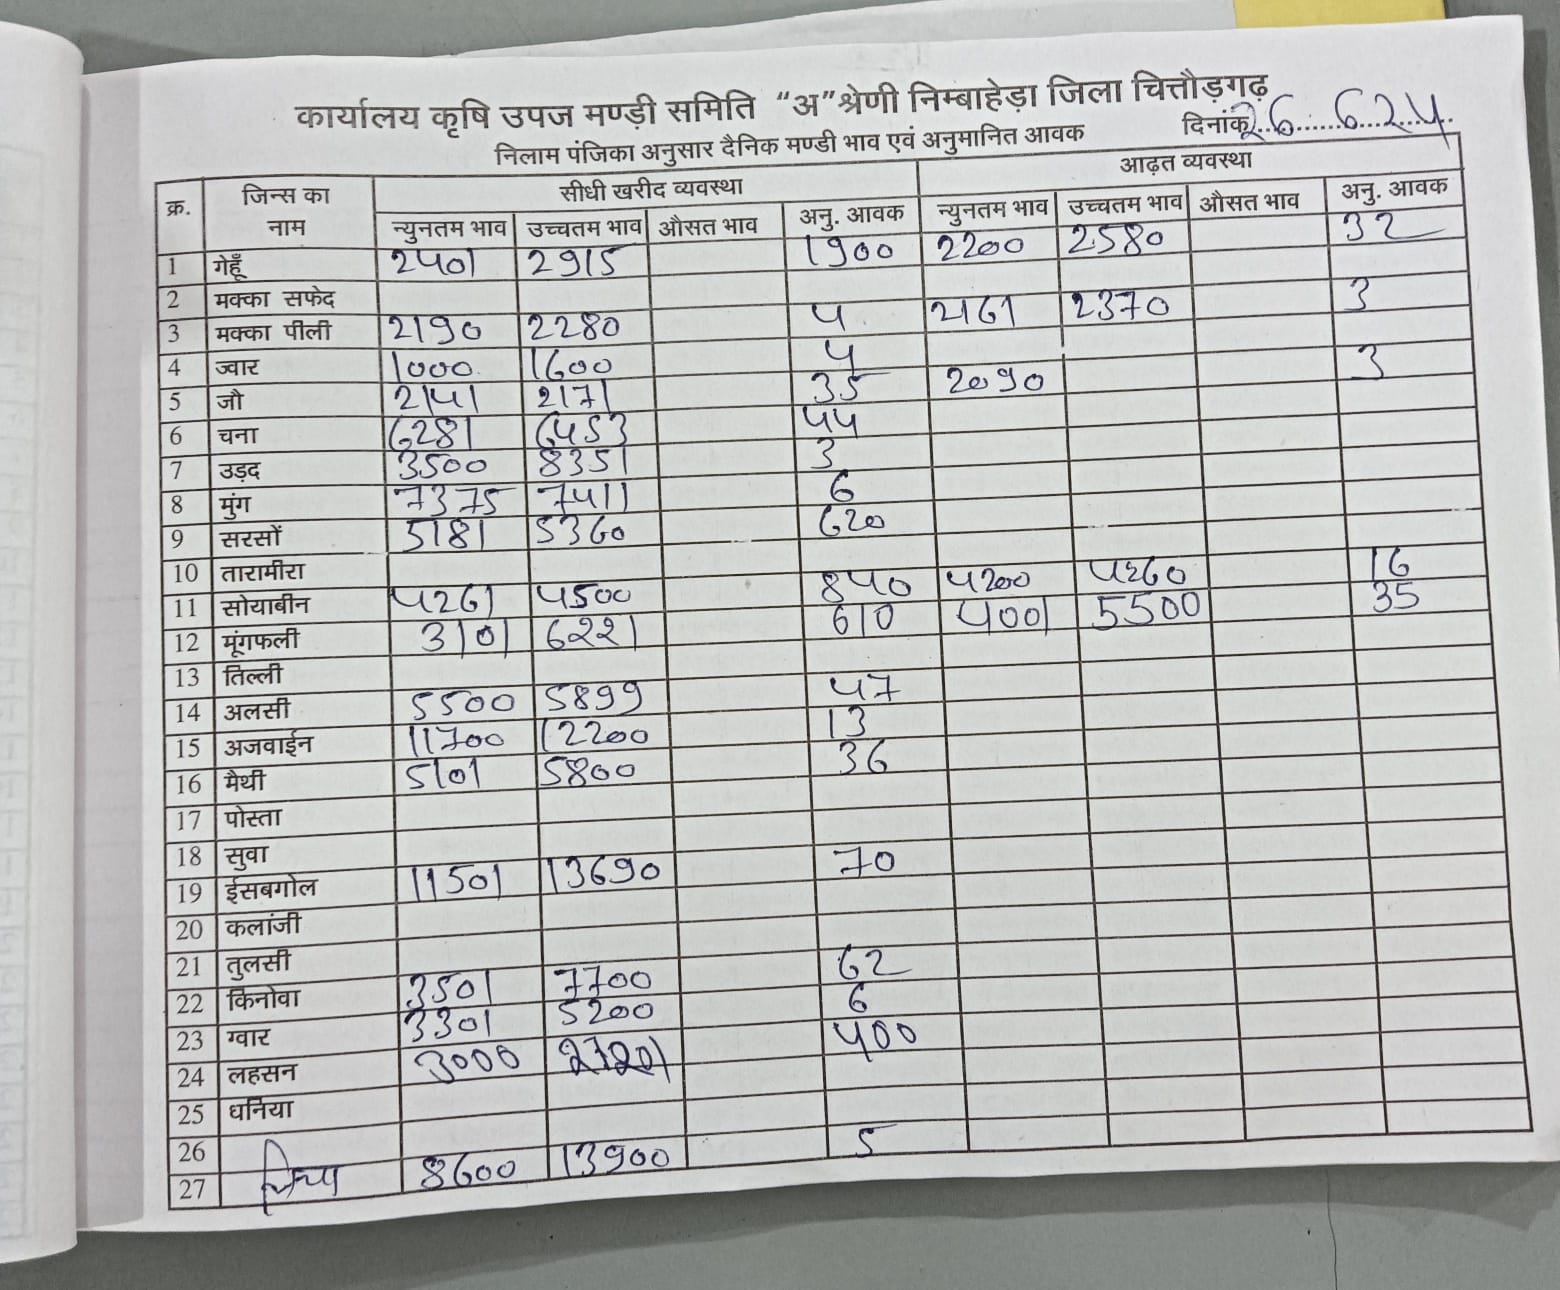 कार्यालय कृषि उपज मण्ड़ी समिति "अ" श्रेणी निम्बाहेड़ा जिला चित्तौड़गढ़
निलाम पंजिका अनुसार दैनिक मण्डी भाव एवं अनुमानित आवक दिनांक 26.6.24
क्र. जिन्स का नाम सीधी खरीद व्यवस्था आढ़त व्यवस्था
न्युनतम भाव उच्चतम भाव औसत भाव अनु. आवक न्युनतम भाव उच्चतम भाव औसत भाव अनु. आवक
1 गेहूँ 2401 2915 1900 2200 2580 32
2 मक्का सफेद
3 मक्का पीली 2190 2280 4 2161 2370 3
4 ज्वार 1000 1600 4
5 जौ 2141 2171 35 2090 3
6 चना 6281 6453 44
7 उड़द 3500 8351 3
8 मुंग 7375 7411 6
9 सरसों 5181 5360 620
10 तारामीरा
11 सोयाबीन 4261 4500 840 4200 4260 16
12 मूंगफली 3101 6221 610 4001 5500 35
13 तिल्ली
14 अलसी 5500 5899 47
15 अजवाईन 11700 12200 13
16 मैथी 5101 5800 36
17 पोस्ता
18 सुवा
19 ईसबगोल 11501 13690 70
20 कलांजी
21 तुलसी
22 किनोवा 3501 7700 62
23 ग्वार 3301 5200 6
24 लहसन 3000 27201 400
25 धनिया
26
27 8600 13900 5